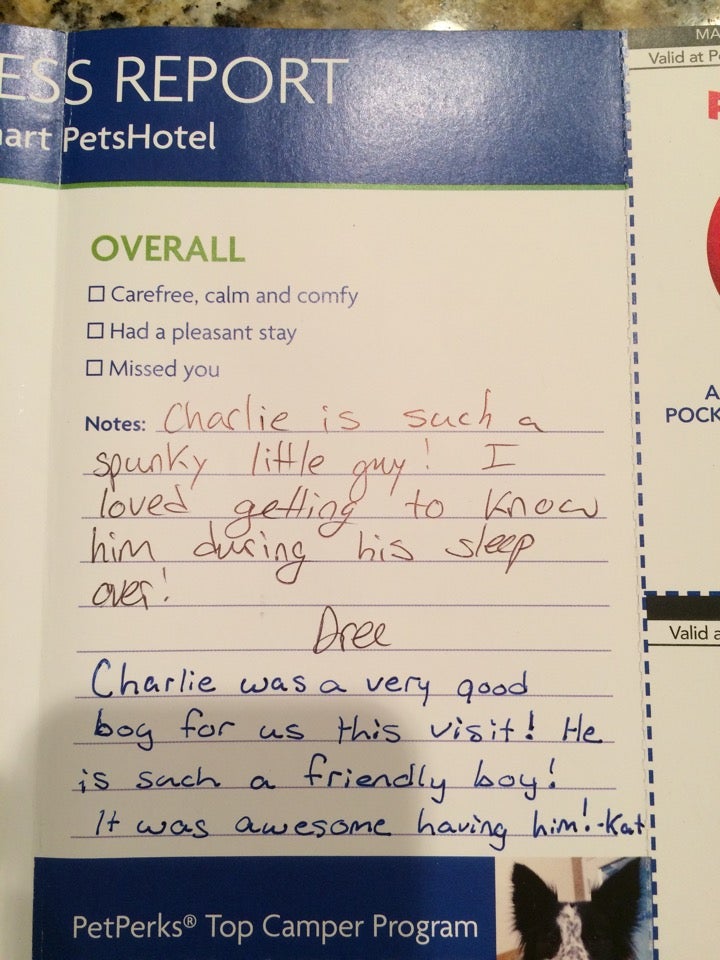 ESS REPORT
mart PetsHotel
OVERALL
☐ Carefree, calm and comfy
☐ Had a pleasant stay
☐ Missed you
Notes: Charlie is such a
spunky little guy! I
loved getting to know
him during his sleep
over!
Dree
Charlie was a very good
boy for us this visit! He
is such a friendly boy!
It was awesome having him! -Kat
PetPerks® Top Camper Program
MA
Valid at Pe
P
A
POCK
Valid a